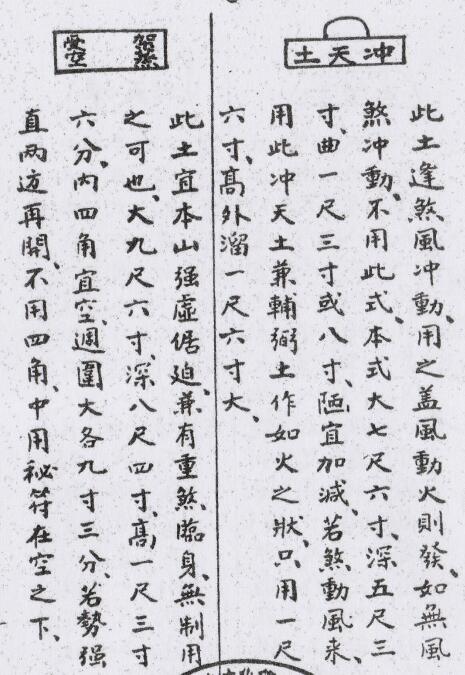 冲天土
此土逢煞風冲動、用之盖風動火則發、如無風
煞冲動、不用此式、本式大七尺六寸、深五尺三
寸、曲一尺三寸或八寸、陋宜加減、若煞動風来、
用此冲天土兼輔弼土作如火之狀、只用一尺
六寸、高外溜一尺六寸大、
此土宜本山强虛倨迫、兼有重煞臨身、無制用
之可也、大九尺六寸、深八尺四寸、高一尺三寸
六分、内四角宜空、週圍大各九寸三分、若勢强
直两边再開、不用四角、中用秘符在空之下、